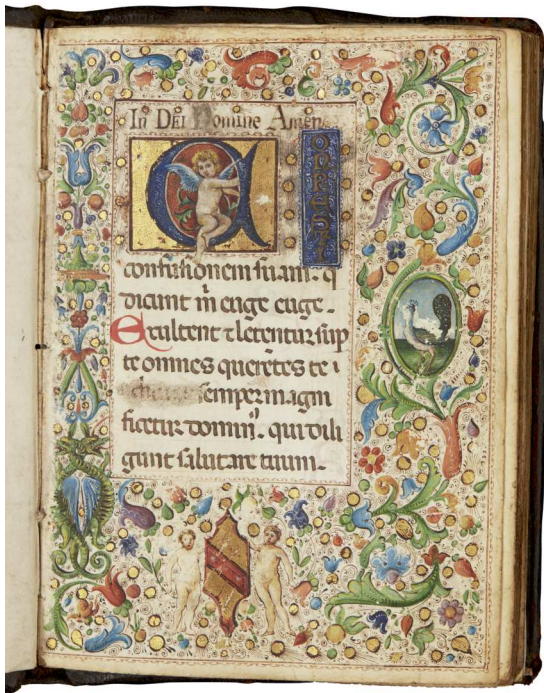 In Dei Nomine Amen
confusionem suam. q
dicunt m euge euge.
Exultent ⁊ letentur sup
te omnes querētes te i
semper magni
ficetur domin. qui dili
gunt salutare tuum.